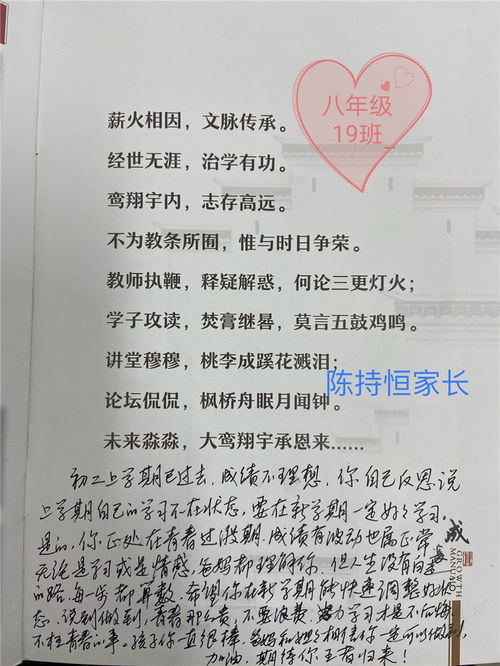 八年级
19班
薪火相因，文脉传承。
经世无涯，治学有功。
鸾翔宇内，志存高远。
不为教条所囿，惟与时日争荣。
教师执鞭，释疑解惑，何论三更灯火；
学子攻读，焚膏继晷，莫言五鼓鸡鸣。
讲堂穆穆，桃李成蹊花溅泪；
陈持恒家长
论坛侃侃，枫桥舟眠月闻钟。
未来淼淼，大鸾翔宇承恩来……
初二上学期已过去，成绩不理想，你自己反思说
上学期自己的学习不在状态，要在新学期一定好好学习。
是的，你正处在青春过渡期，成绩有波动也属正常
无论是学习或是情感，爸妈都理解你，但人生没有白走
的路，每一步都算数，希望你在新学期能快速调整好状
态，说到做到，青春那么贵，不要浪费，努力学习才是不后悔
不枉青春的事。孩子你一直很棒，爸妈和姐姐相信你一定可以做到，
加油，期待你王者归来！
成长
GROWTH